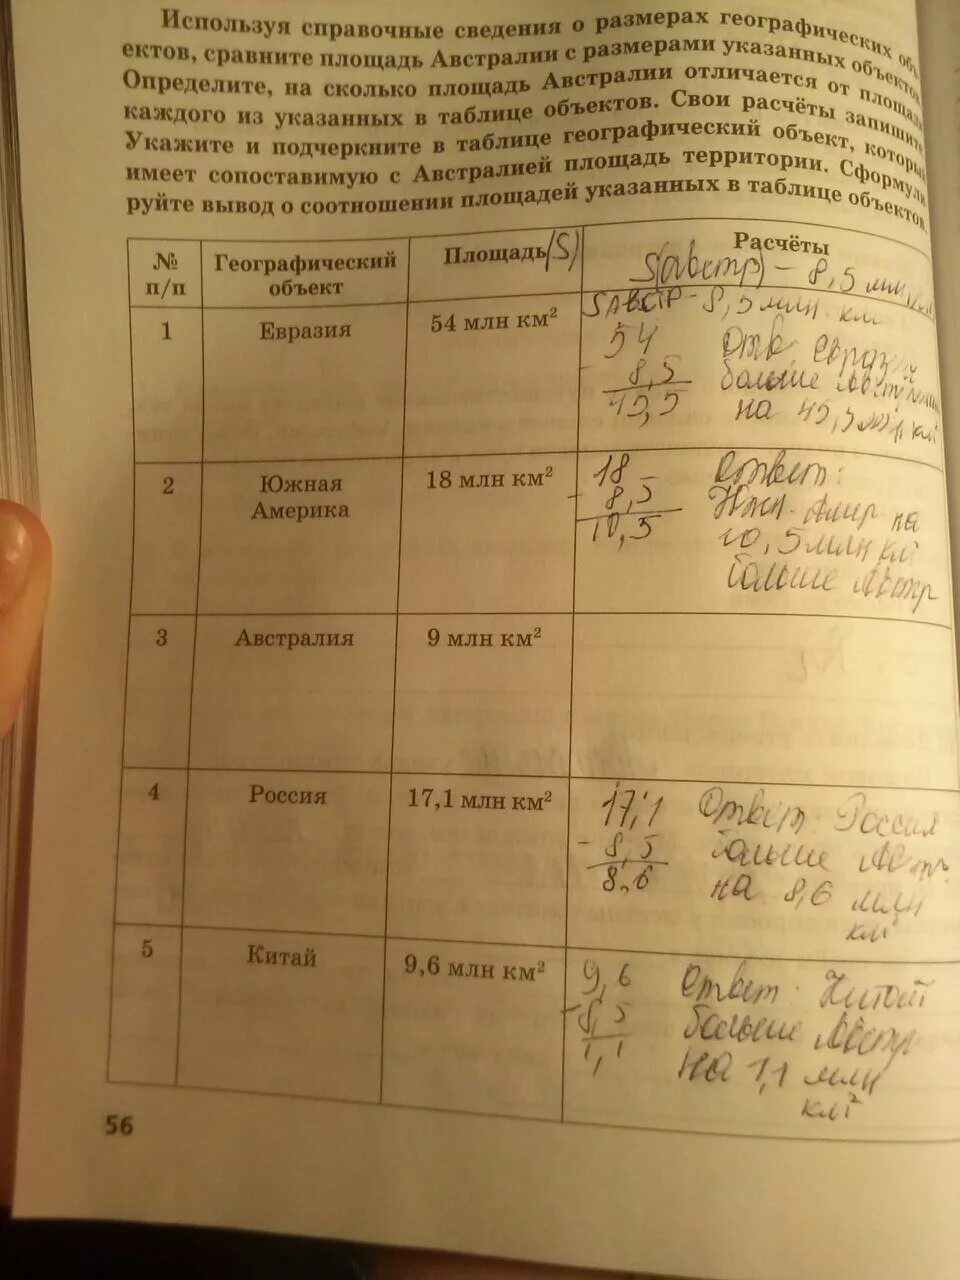 Используя справочные сведения о размерах географических объ-
ектов, сравните площадь Австралии с размерами указанных объектов.
Определите, на сколько площадь Австралии отличается от площади
каждого из указанных в таблице объектов. Свои расчёты запишите.
Укажите и подчеркните в таблице географический объект, который
имеет сопоставимую с Австралией площадь территории. Сформули-
руйте вывод о соотношении площадей указанных в таблице объектов.
№ п/п
Географический объект
Площадь (S)
Расчёты
S(австр) - 8,5 млн
1
Евразия
54 млн км²
SАВСТР - 8,5 млн. км
54
- 8,5
45,5
Отв.
больше
на 45,5
2
Южная
Америка
18 млн км²
18
- 8,5
10,5
Ответ:
Южн. Амер на
10,5 млн км
больше Австр
3
Австралия
9 млн км²
4
Россия
17,1 млн км²
17,1
- 8,5
8,6
Ответ: Россия
больше Австр.
на 8,6 млн
км²
5
Китай
9,6 млн км²
9,6
- 8,5
1,1
Ответ: Китай
больше Австр
на 1,1 млн
км²
56